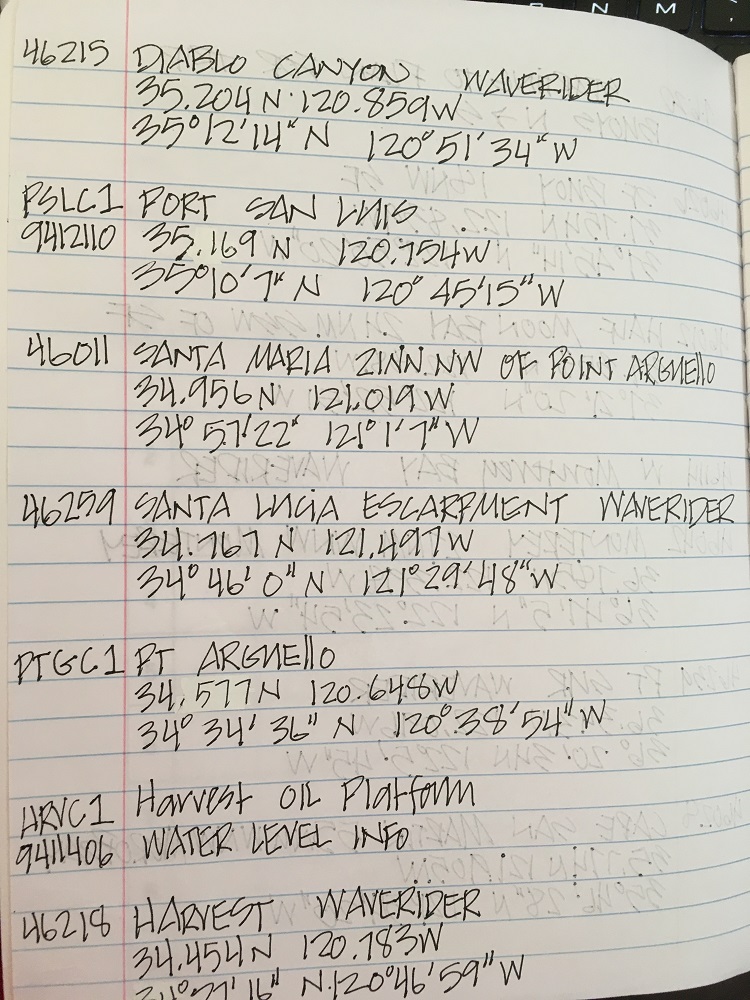 N M
46215 DIABLO CANYON WAVERIDER
35.204 N 120.859W
35°12'14" N 120°51'34" W
PSLC1 PORT SAN LUIS
9412110 35.169 N 120.754W
35°10'7" N 120°45'15" W
46011 SANTA MARIA 21NN.NW OF POINT ARGUEllO
34.956 N 121.019 W
34°57'22' 121°1'7" W
46259 SANTA LUCIA ESCARPMENT WAVERIDER
34.767 N 121.497W
34°46'0" N 121°29'48" W
PTGC1 PT ARGUEllO
34.577N 120.648W
34°34'36" N 120°38'54" W
HRVC1 Harvest OIL Platform
9411406 WATER LEVEL INFO
46218 HARVEST WAVERIDER
34.454N 120.783W
34°27'16" N 120°46'59" W